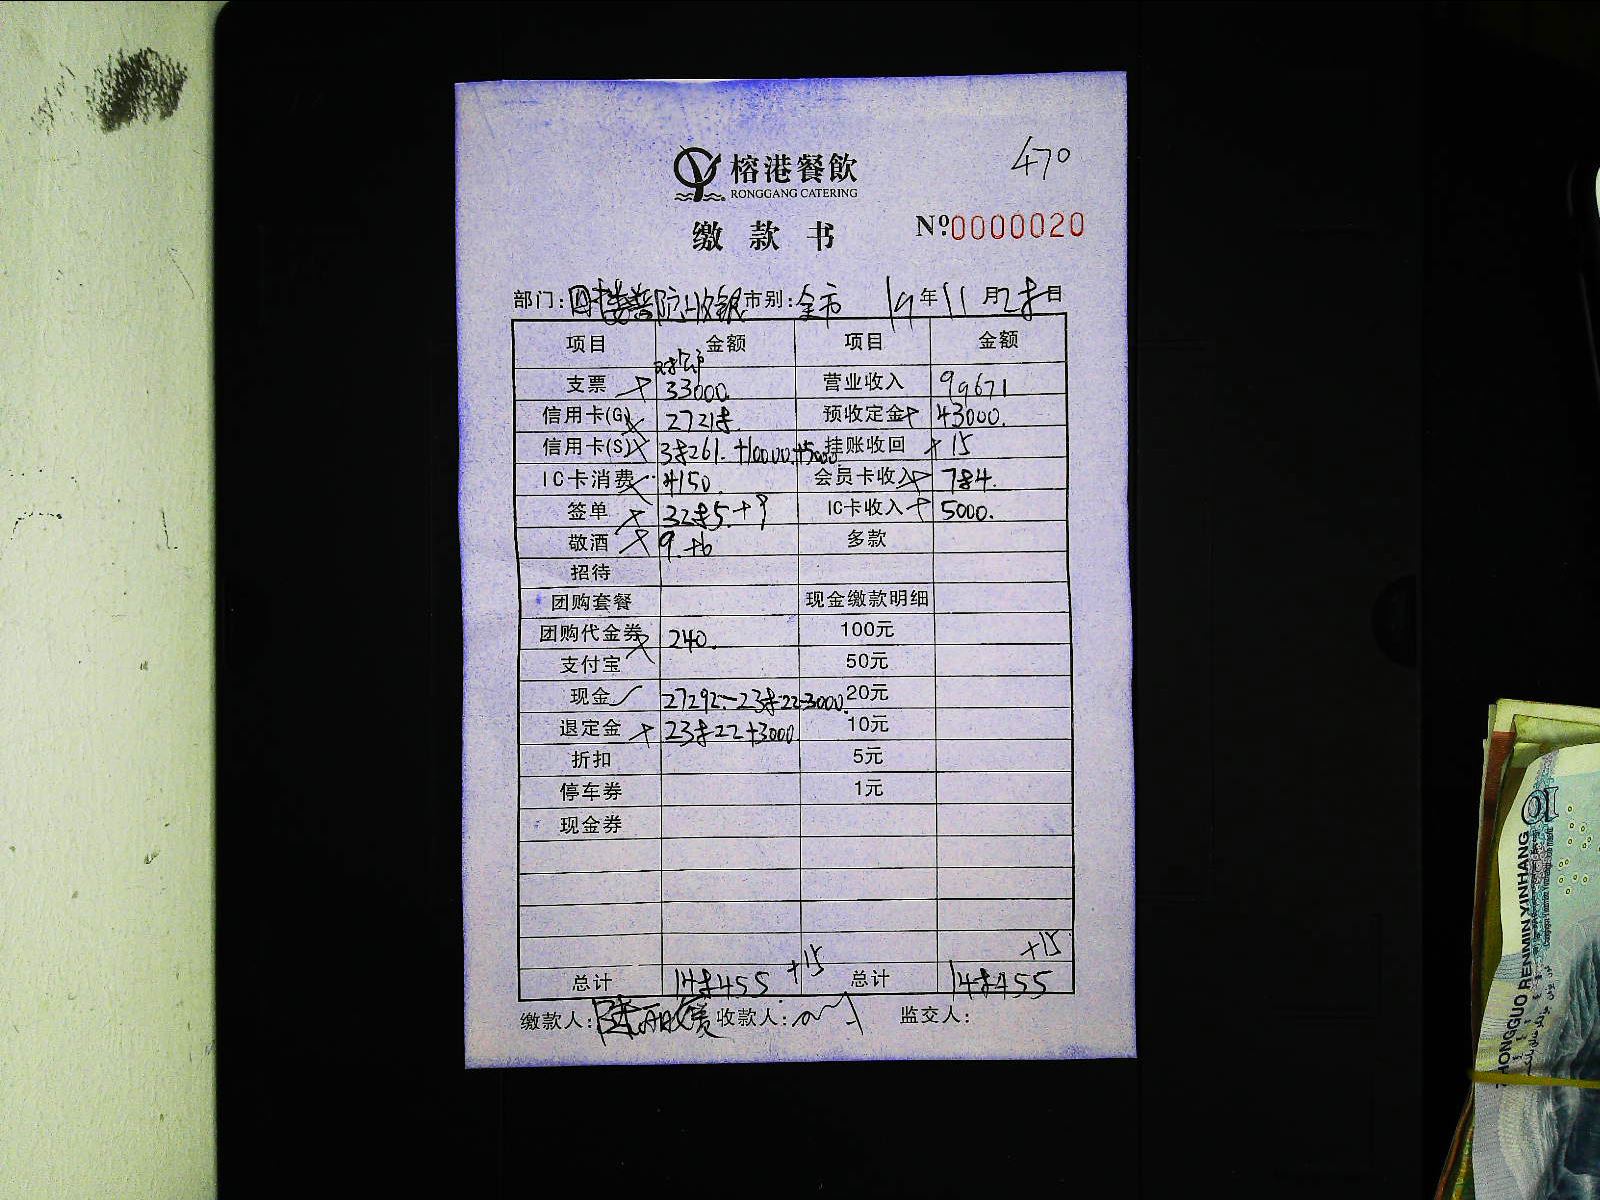 470
榕港餐飲
RONGGANG CATERING
缴款书
Nº:0000020
部门: 四楼 收银 市别: 全市 19年11月28日
项目 金额 项目 金额
支票 33000. 营业收入 99671
信用卡(G) 27218. 预收定金 43000.
信用卡(S) 38261.+10000+5000 挂账收回 +15
IC卡消费 4150. 会员卡收入 784.
签单 3285.+9 IC卡收入 5000.
敬酒 9.+6 多款
招待
团购套餐 现金缴款明细
团购代金券 240. 100元
支付宝 50元
现金 27292.-23822-3000. 20元
退定金 23822+3000 10元
折扣 5元
停车券 1元
现金券
+15 +15
总计 148455 总计 148455
缴款人: 收款人: 监交人:
10
ZHONGGUO RENMIN YINHANG